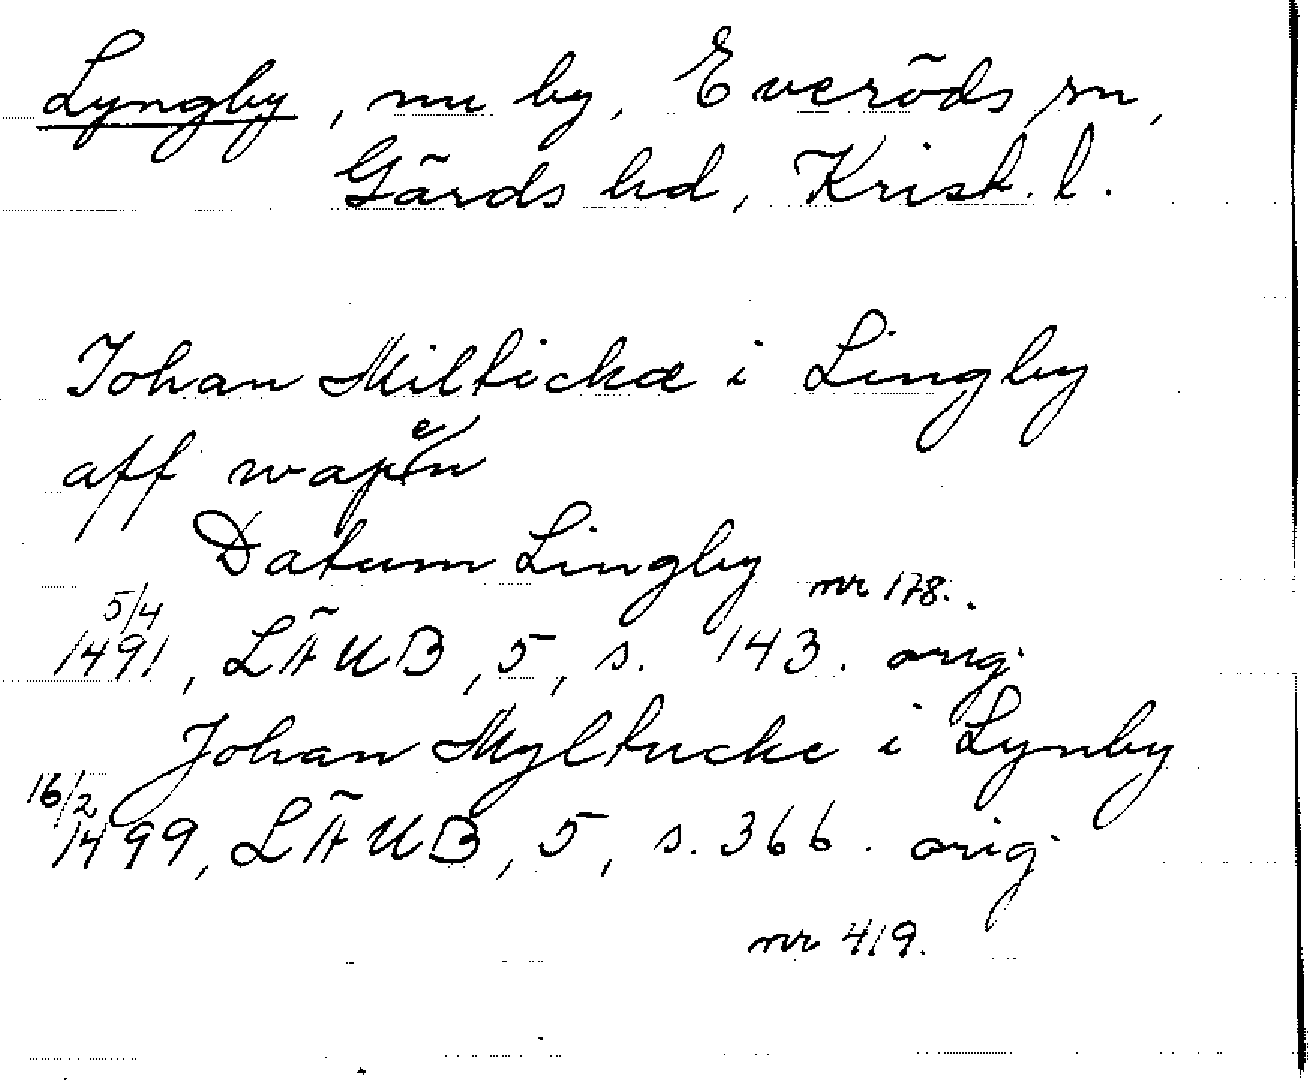 Lyngby, nu by, Everöds sn,
Gärds hd, Krist. l.
Johan Miltickæ i Lingby
aff wapen
Datum Lingby
5/4 1491, LÄUB, 5, s. 143. orig. nr 178.
Johan Myltucke i Lynby
16/2 1499, LÄUB, 5, s. 366. orig.
nr 419.